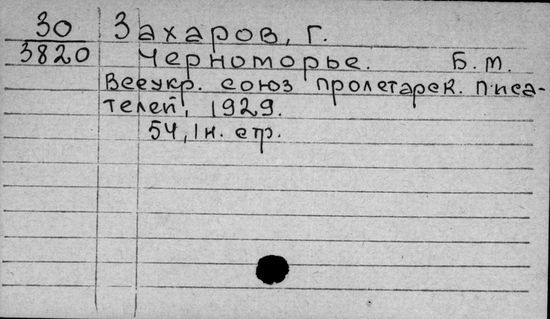 30 Захаров, Г.
3820 Черноморье. Б.м.
Всеукр. союз пролетарск. писа-
телей, 1929.
54, 1н. стр.